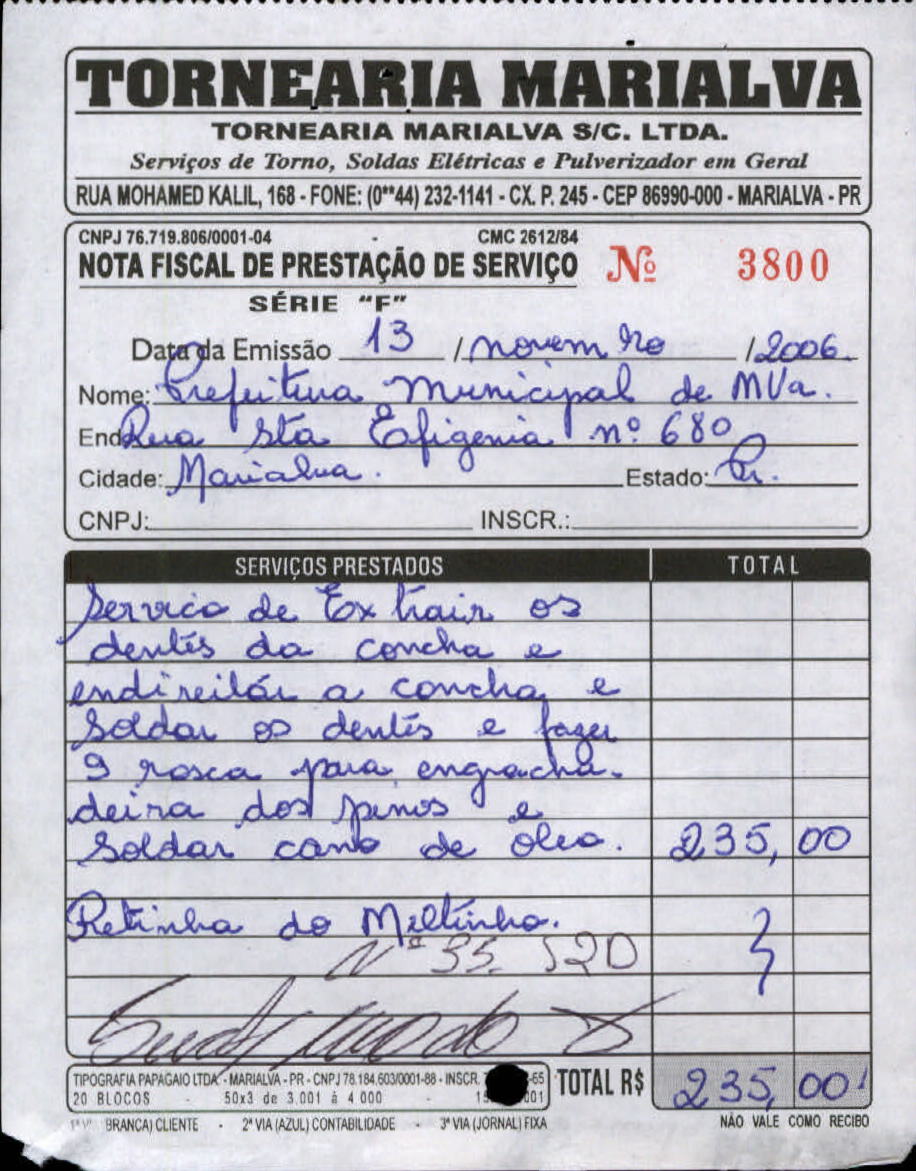 TORNEARIA MARIALVA
TORNEARIA MARIALVA S/C. LTDA.
Serviços de Torno, Soldas Elétricas e Pulverizador em Geral
RUA MOHAMED KALIL, 168 - FONE: (0**44) 232-1141 - CX. P. 245 - CEP 86990-000 - MARIALVA - PR
CNPJ 76.719.806/0001-04 - CMC 2612/84
NOTA FISCAL DE PRESTAÇÃO DE SERVIÇO Nº 3800
SÉRIE "F"
Data da Emissão 13 / novembro / 2006.
Nome: Prefeitura Municipal de MVa.
End. Rua Sta Efigenia nº 680
Cidade: Marialva. Estado: Pr.
CNPJ: INSCR.:
SERVIÇOS PRESTADOS TOTAL
Servico de Extrair os
dentes da concha e
endireitár a concha e
Soldar os dentes e fazer
9 rosca para engracha-
deira dos pinos e
Soldar cano de oleo. 235,00
Retinha do Miltinho.
Nº 95. 520
TIPOGRAFIA PAPAGAIO LTDA. - MARIALVA - PR - CNPJ 78.184.603/0001-88 - INSCR.
20 BLOCOS - 50x3 de 3.001 à 4 000 -
TOTAL R$ 235,00
BRANCA) CLIENTE - 2ª VIA (AZUL) CONTABILIDADE - 3ª VIA (JORNAL) FIXA
NÃO VALE COMO RECIBO